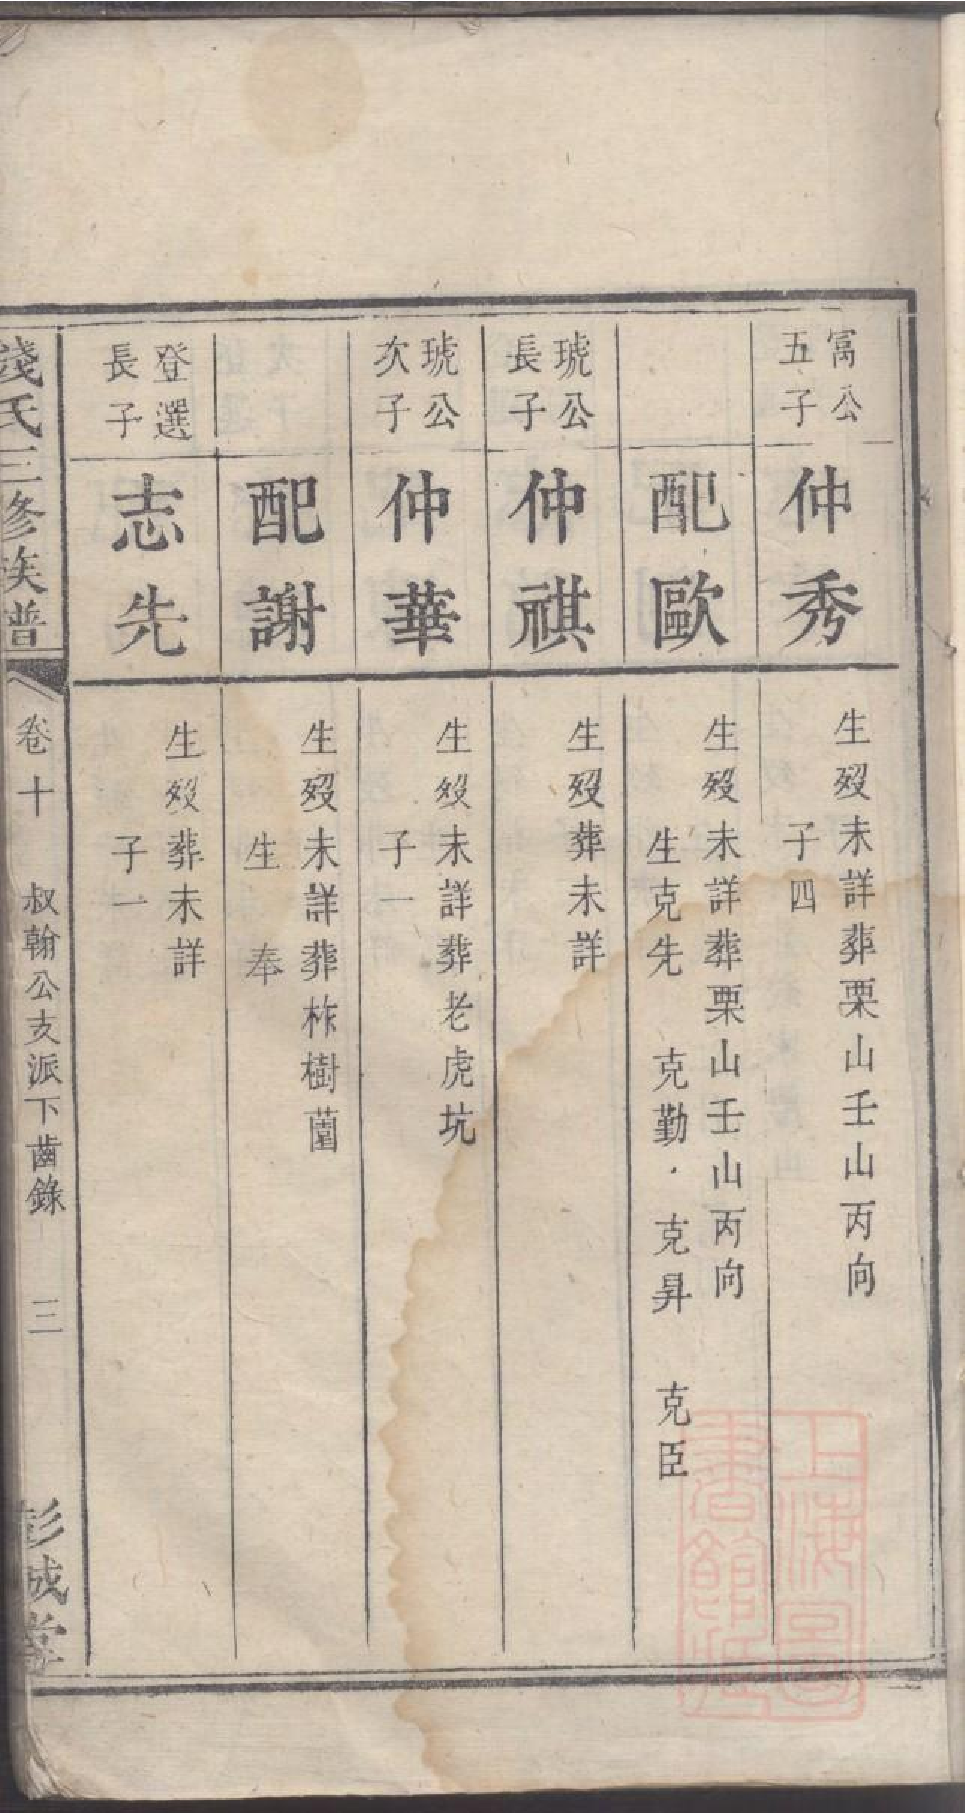 寓公
五子
仲秀
生歿未詳葬栗山壬山丙向
子四
配歐
生歿未詳葬栗山壬山丙向
生克先 克勤 克昇 克臣
琥公
長子
仲祺
生歿葬未詳
琥公
次子
仲華
生歿未詳葬老虎坑
子一
配謝
生歿未詳葬柞樹薗
生 奉
登選
長子
志先
生歿葬未詳
子一
錢氏三修族譜
卷十 叔翰公支派下齒錄 三
彭城堂
上海圖
書館藏